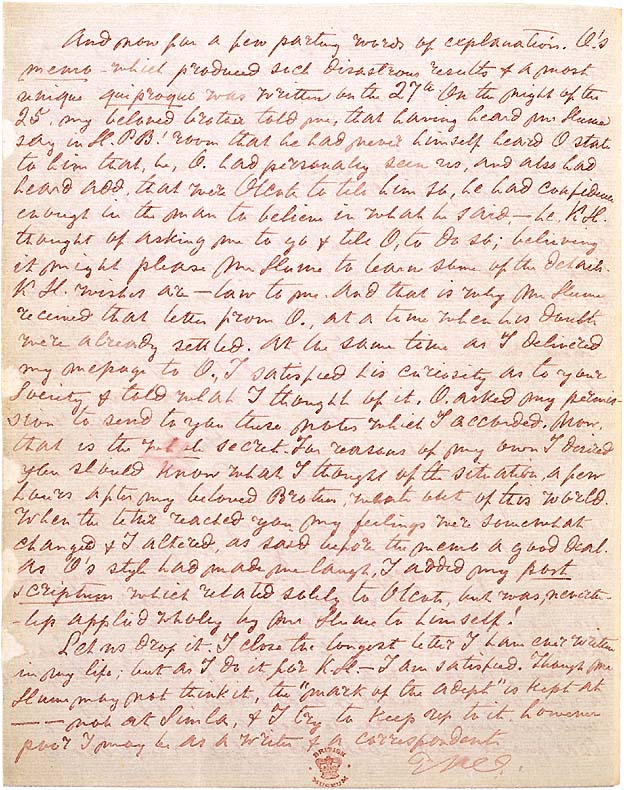 And now for a few parting words of explanation. O's
memo which produced such disastrous results & a most
unique quiproquo was written on the 27th On the night of the
25, my beloved brother told me, that having heard Mr Hume
say in H.P.B.' room that he had never himself heard O state
to him that, he, O. had personally seen us, and also had
heard add, that were Olcott to tell him so, he had confidence
enough in the man to believe in what he said,—he K.H.
thought of asking me to go & tell O, to do so; believing
it might please Mr Hume to learn some of the details.
K H. wishes are — law to me. And that is why Mr Hume
received that letter from O., at a time when his doubts
were already settled. At the same time as I delivered
my message to O, I satisfied his curiosity as to your
Society & told what I thought of it. O. asked my permis-
sion to send to you these notes which I accorded. Now
that is the whole secret. For reasons of my own I desired
you should know what I thought of the situation, a few
hours after my beloved Brother, went out of this world.
When the letter reached you my feelings were somewhat
changed & I altered, as said before the memo a good deal.
As O's style had made me laugh, I added my post
scriptum which related solely to Olcott, but was, neverthe-
-less applied wholly by Mr Hume to himself!
Let us drop it. I close the longest letter I have ever written
in my life; but as I do it for K.H. — I am satisfied. Though Mr
Hume may not think it, the "mark of the adept" is kept at
— — not at Simla, & I try to keep up to it. however
poor I may be as a writer & a correspondent
BRITISH
MUSEUM